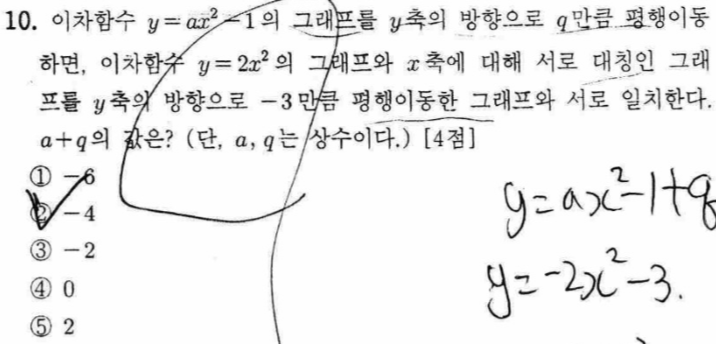 10. 이차함수 y=ax²-1의 그래프를 y축의 방향으로 q만큼 평행이동
하면, 이차함수 y=2x²의 그래프와 x축에 대해 서로 대칭인 그래
프를 y축의 방향으로 -3만큼 평행이동한 그래프와 서로 일치한다.
a+q의 값은? (단, a, q는 상수이다.) [4점]
① -6
② -4
③ -2
④ 0
⑤ 2
y=ax²-1+q
y=-2x²-3.